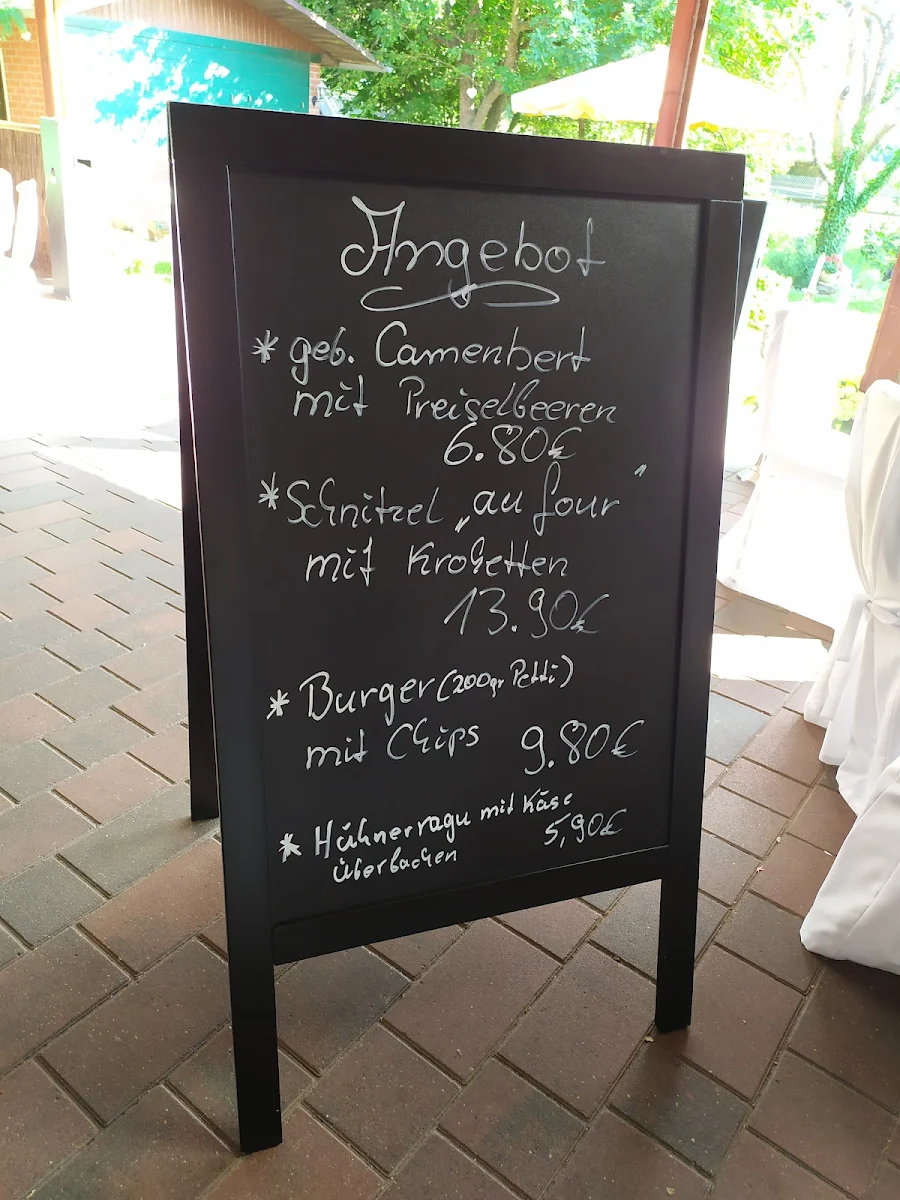 Angebot
* geb. Camenbert
mit Preiselbeeren
6.80€
* Schnitzel „au four"
mit Kroketten
13.90€
* Burger (200gr Petti)
mit Chips 9.80€
* Hühnerragu mit Käse
überbacken 5,90€